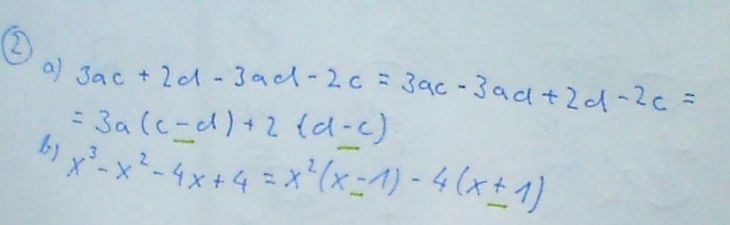 ② a) 3ac + 2d - 3ad - 2c = 3ac - 3ad + 2d - 2c =
= 3a (c - d) + 2 (d - c)
b) x³ - x² - 4x + 4 = x² (x - 1) - 4 (x + 1)